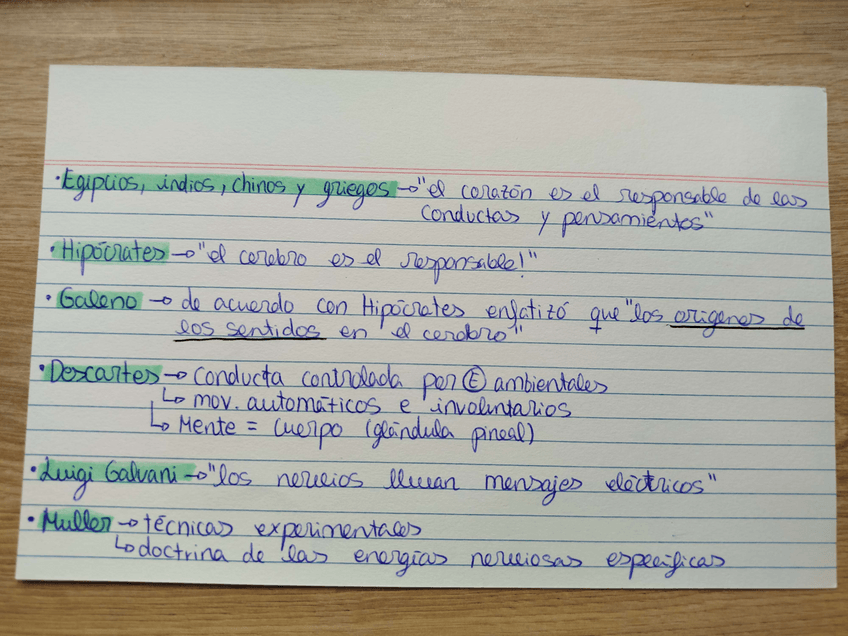 · Egipcios, indios, chinos y griegos → "el corazón es el responsable de las
conductas y pensamientos"
· Hipócrates → "el cerebro es el responsable!"
· Galeno → de acuerdo con Hipócrates enfatizó que "los orígenes de
los sentidos en el cerebro"
· Descartes → conducta controlada por Ⓔ ambientales
↳ mov. automáticos e involuntarios
↳ Mente = cuerpo (glándula pineal)
· Luigi Galvani → "los nervios llevan mensajes eléctricos"
· Muller → técnicas experimentales
↳ doctrina de las energías nerviosas específicas